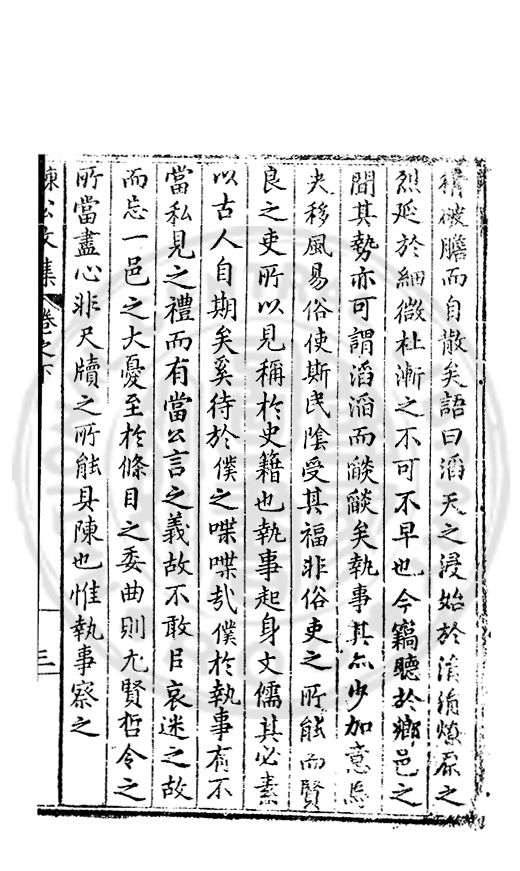 破膽而自散矣語曰滔天之浸始於涓涓燎原之
烈延於細微杜漸之不可不早也今竊聽於鄉邑之
間其勢亦可謂滔滔而燄燄矣執事其亦少加意焉
夫移風易俗使斯民陰受其福非俗吏之所能而賢
良之吏所以見稱於史籍也執事起身文儒其必素
以古人自期矣奚待於僕之喋喋哉僕於執事有不
當私見之禮而有當公言之義故不敢㠯哀迷之故
而忘一邑之大憂至於條目之委曲則尤賢哲令之
所當盡心非尺牘之所能具陳也惟執事察之
陳公文集 卷之下 三